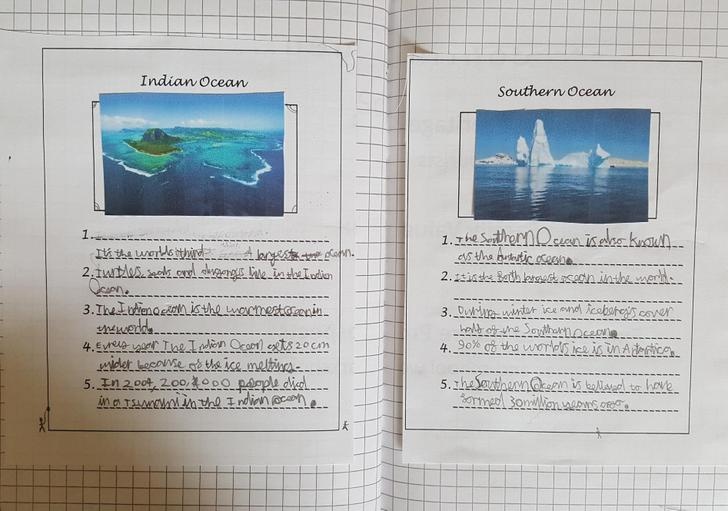 Indian Ocean
1.
It's the worlds third largest ocean.
2. Turtles, seals and dugongs live in the Indian
Ocean.
3. The Indian ocean is the warmest ocean in
the world.
4. Every year The Indian Ocean gets 20cm
wider because of the ice melting.
5. In 2004, 200,000 people died
in a Tsunami in the Indian ocean.
Southern Ocean
1. The Southern Ocean is also known
as the Antarctic ocean.
2. It is the forth largest ocean in the world.
3. During winter ice and icebergs cover
half of the Southern Ocean.
4. 90% of the world's ice is in Antartica.
5. The Southern Ocean is believed to have
formed 30 million years ago.